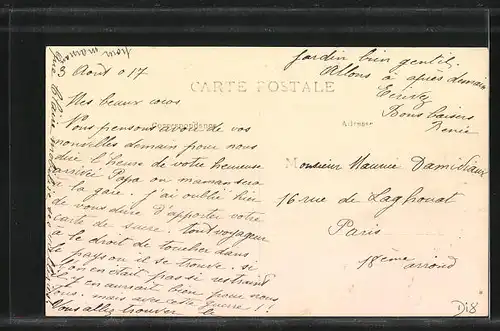 3 Août 917
CARTE POSTALE
Correspondance
Adresse
Mes beaux cocos
Nous pensons avoir de vos
nouvelles demain pour nous
dire l'heure de votre heureuse
arrivée Papa ou maman sera
à la gare. J'ai oublié hier
de vous dire d'apporter votre
carte de sucre. tout voyageur
a le droit de toucher dans
le pays où il se trouve. si
l'on en était pas si restreint
il y en aurait bien pour nous
tous, mais avec cette guerre !!
Vous allez trouver le
jardin bien gentil.
Allons à après demain
Ecrivez
Bons baisers
Renée
Monsieur Maurice Damideaux
16 rue de Laghouat
Paris
18ème arrond
pour maman
Di8